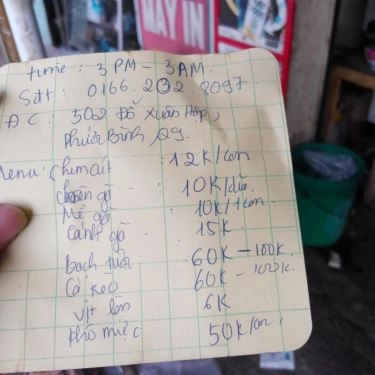 MAY IN
time : 3 PM - 3 AM.
Sđt : 0166.232 8097
ĐC : 502 Đỗ Xuân Hợp,
Phước Bình, Q9.
Menu : Chim cút : 12K/con
gà : 10K/dĩa.
Mề gà 10K/1con
Cánh gà - 15K
bạch tuộc 60K - 100K.
Cá kèo 60K - 100K.
vịt lộn 6K
khô mực 50K/con.